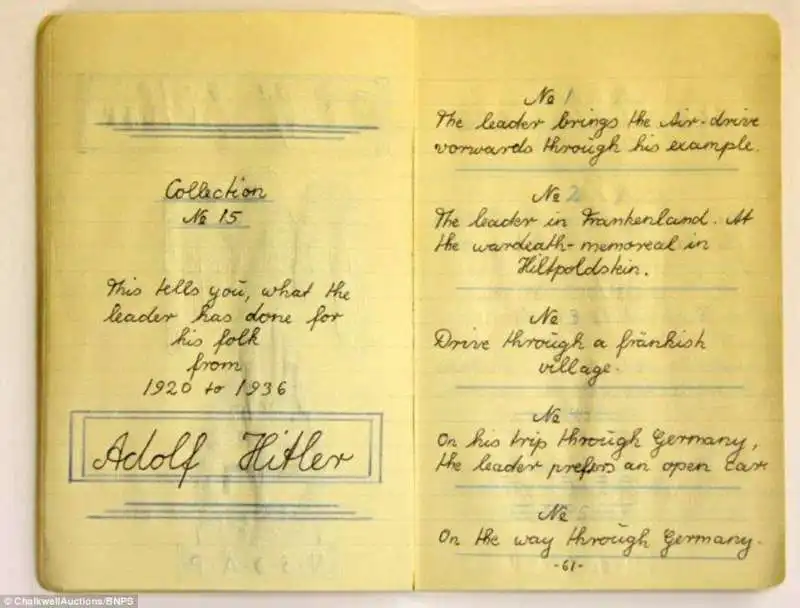 Collection
No 15
This tells you, what the
leader has done for
his folk
from
1920 to 1936
Adolf Hitler
No 1
The leader brings the Air-drive
vorwards through his example.
No 2
The leader in Frankenland. At
the wardeath-memoreal in
Hiltpoldstein.
No 3
Drive through a fränkish
village.
No 4
On his trip through Germany,
the leader prefers an open Car
No 5
On the way through Germany.
-61-
© ChalkwellAuctions/BNPS